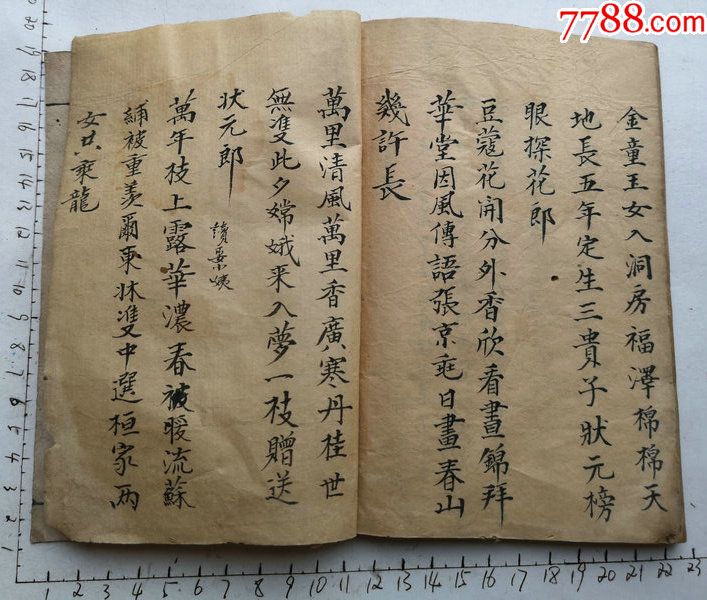 7788.com
金童玉女入洞房福澤棉棉天
地長五年定生三貴子狀元榜
眼探花郎
豆蔻花開分外香欣看晝錦拜
華堂因風傳語張京兆日畫春山
幾許長
萬里清風萬里香廣寒丹桂世
無雙此夕嫦娥來入夢一枝贈送
狀元郎
續娶小姨
萬年枝上露華濃春被暖流蘇
繡被重羨爾東牀雙中選桓家兩
女共乘龍
1 2 3 4 5 6 7 8 9 10 11 12 13 14 15 16 17 18 19 20 21 22 23
1 2 3 4 5 6 7 8 9 10 11 12 13 14 15 16 17 18 19 20